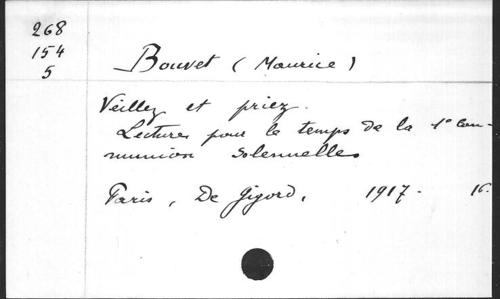 268
154
5
Bouvet (Maurice)
Veillez et priez.
Lectures pour le temps de la 1e Com-
munion solennelles
Paris, De Gigord, 1917. 16.